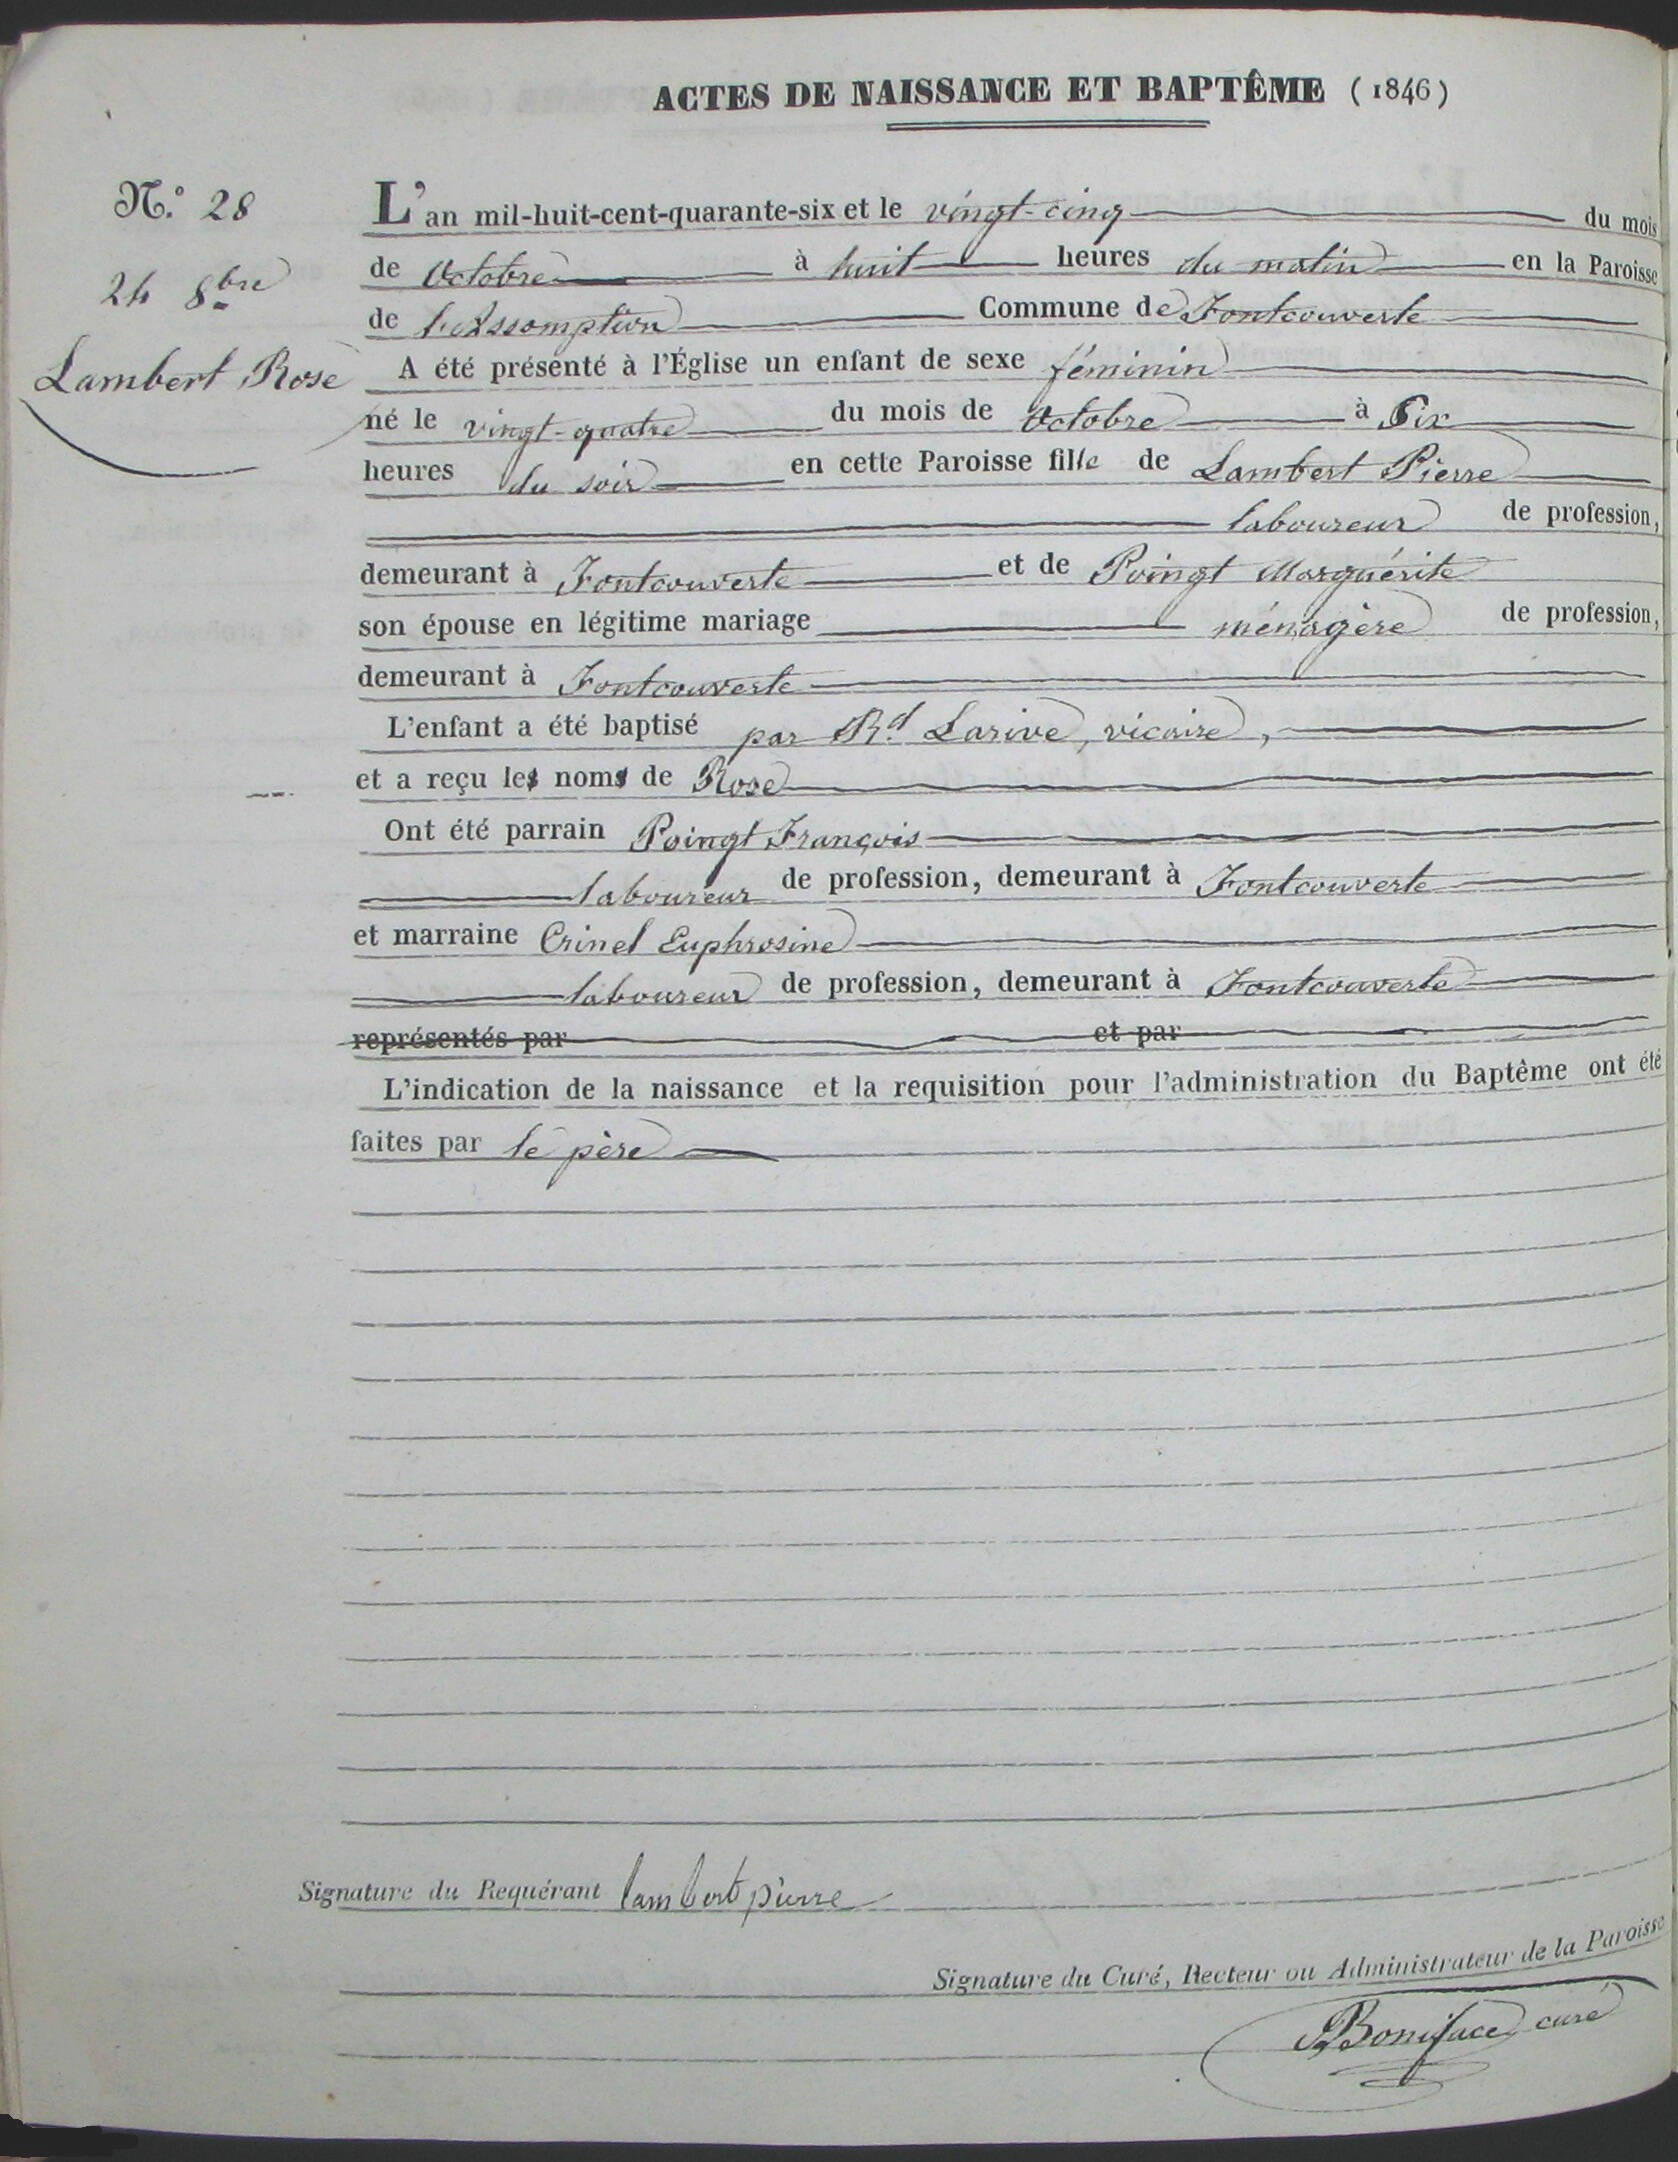 ACTES DE NAISSANCE ET BAPTÊME (1846)
N.° 28
24 8bre
Lambert Rose
L'an mil-huit-cent-quarante-six et le vingt-cinq du mois
de Octobre à huit heures du matin en la Paroisse
de l'Assomption Commune de Fontcouverte
A été présenté à l'Église un enfant de sexe féminin
né le vingt-quatre du mois de Octobre à Six
heures du soir en cette Paroisse fille de Lambert Pierre
laboureur de profession,
demeurant à Fontcouverte et de Poingt Marguérite
son épouse en légitime mariage ménagère de profession,
demeurant à Fontcouverte
L'enfant a été baptisé par Rd Larive, vicaire,
et a reçu les noms de Rose
Ont été parrain Poingt François
laboureur de profession, demeurant à Fontcouverte
et marraine Crinel Euphrosine
laboureur de profession, demeurant à Fontcouverte
représentés par et par
L'indication de la naissance et la requisition pour l'administration du Baptême ont été
faites par le père
Signature du Requérant lambert pierre
Signature du Curé, Recteur ou Administrateur de la Paroisse
Boniface curé